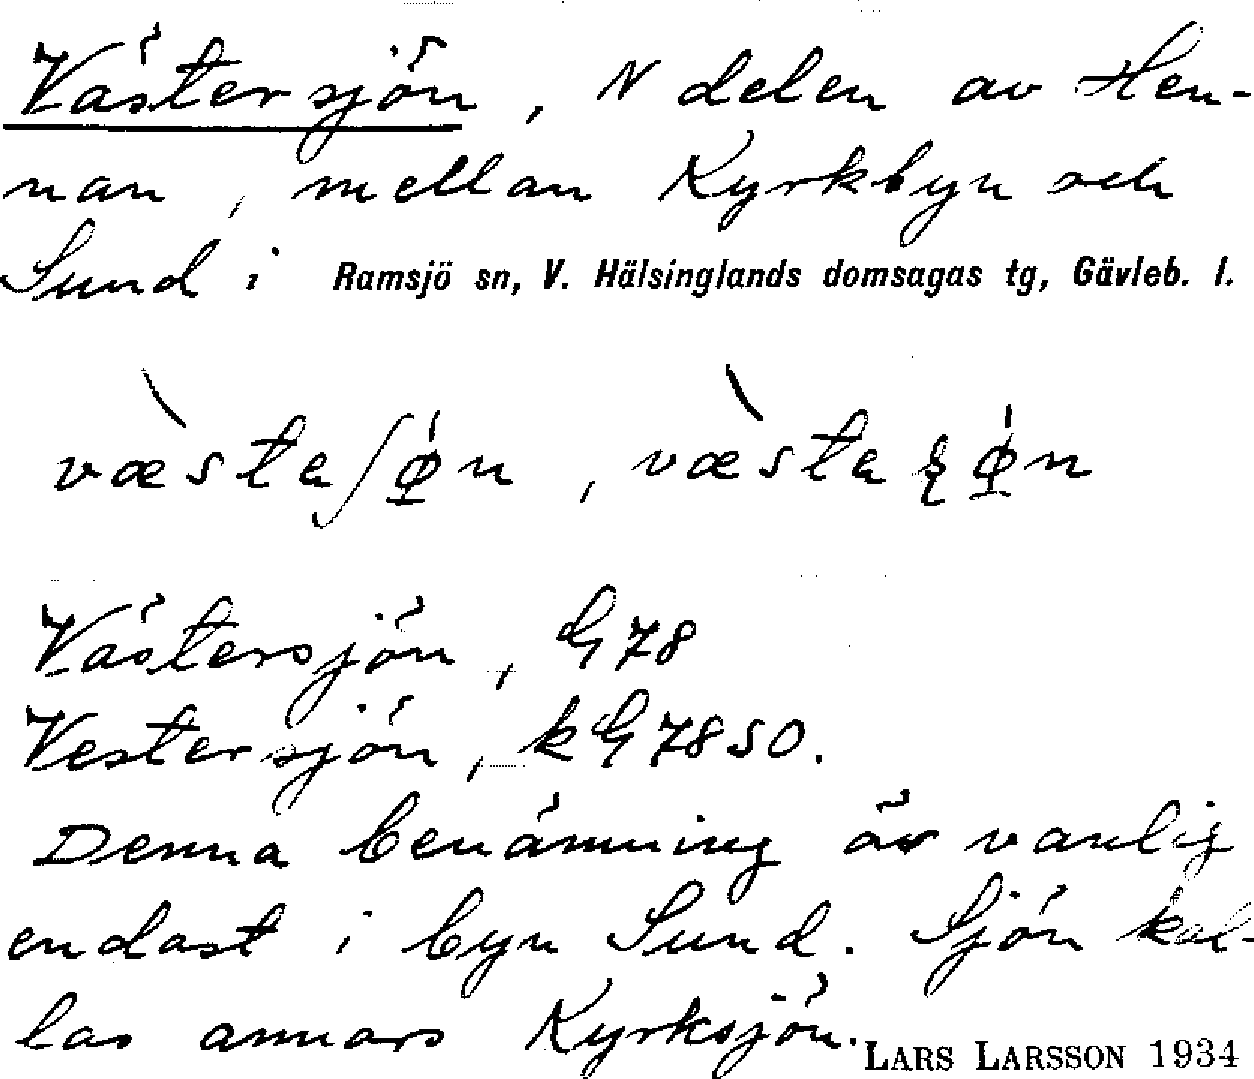 Västersjön, N delen av Hen-
nan, mellan Kyrkbyn och
Sund i Ramsjö sn, V. Hälsinglands domsagas tg, Gävleb. l.
væ̀staʃø̲n, væ̀sta ø̲n
Västersjön, G78
Vestersjön, kG7850.
Denna benämning är vanlig
endast i byn Sund. Sjön kal-
las annars Kyrksjön.
LARS LARSSON 1934